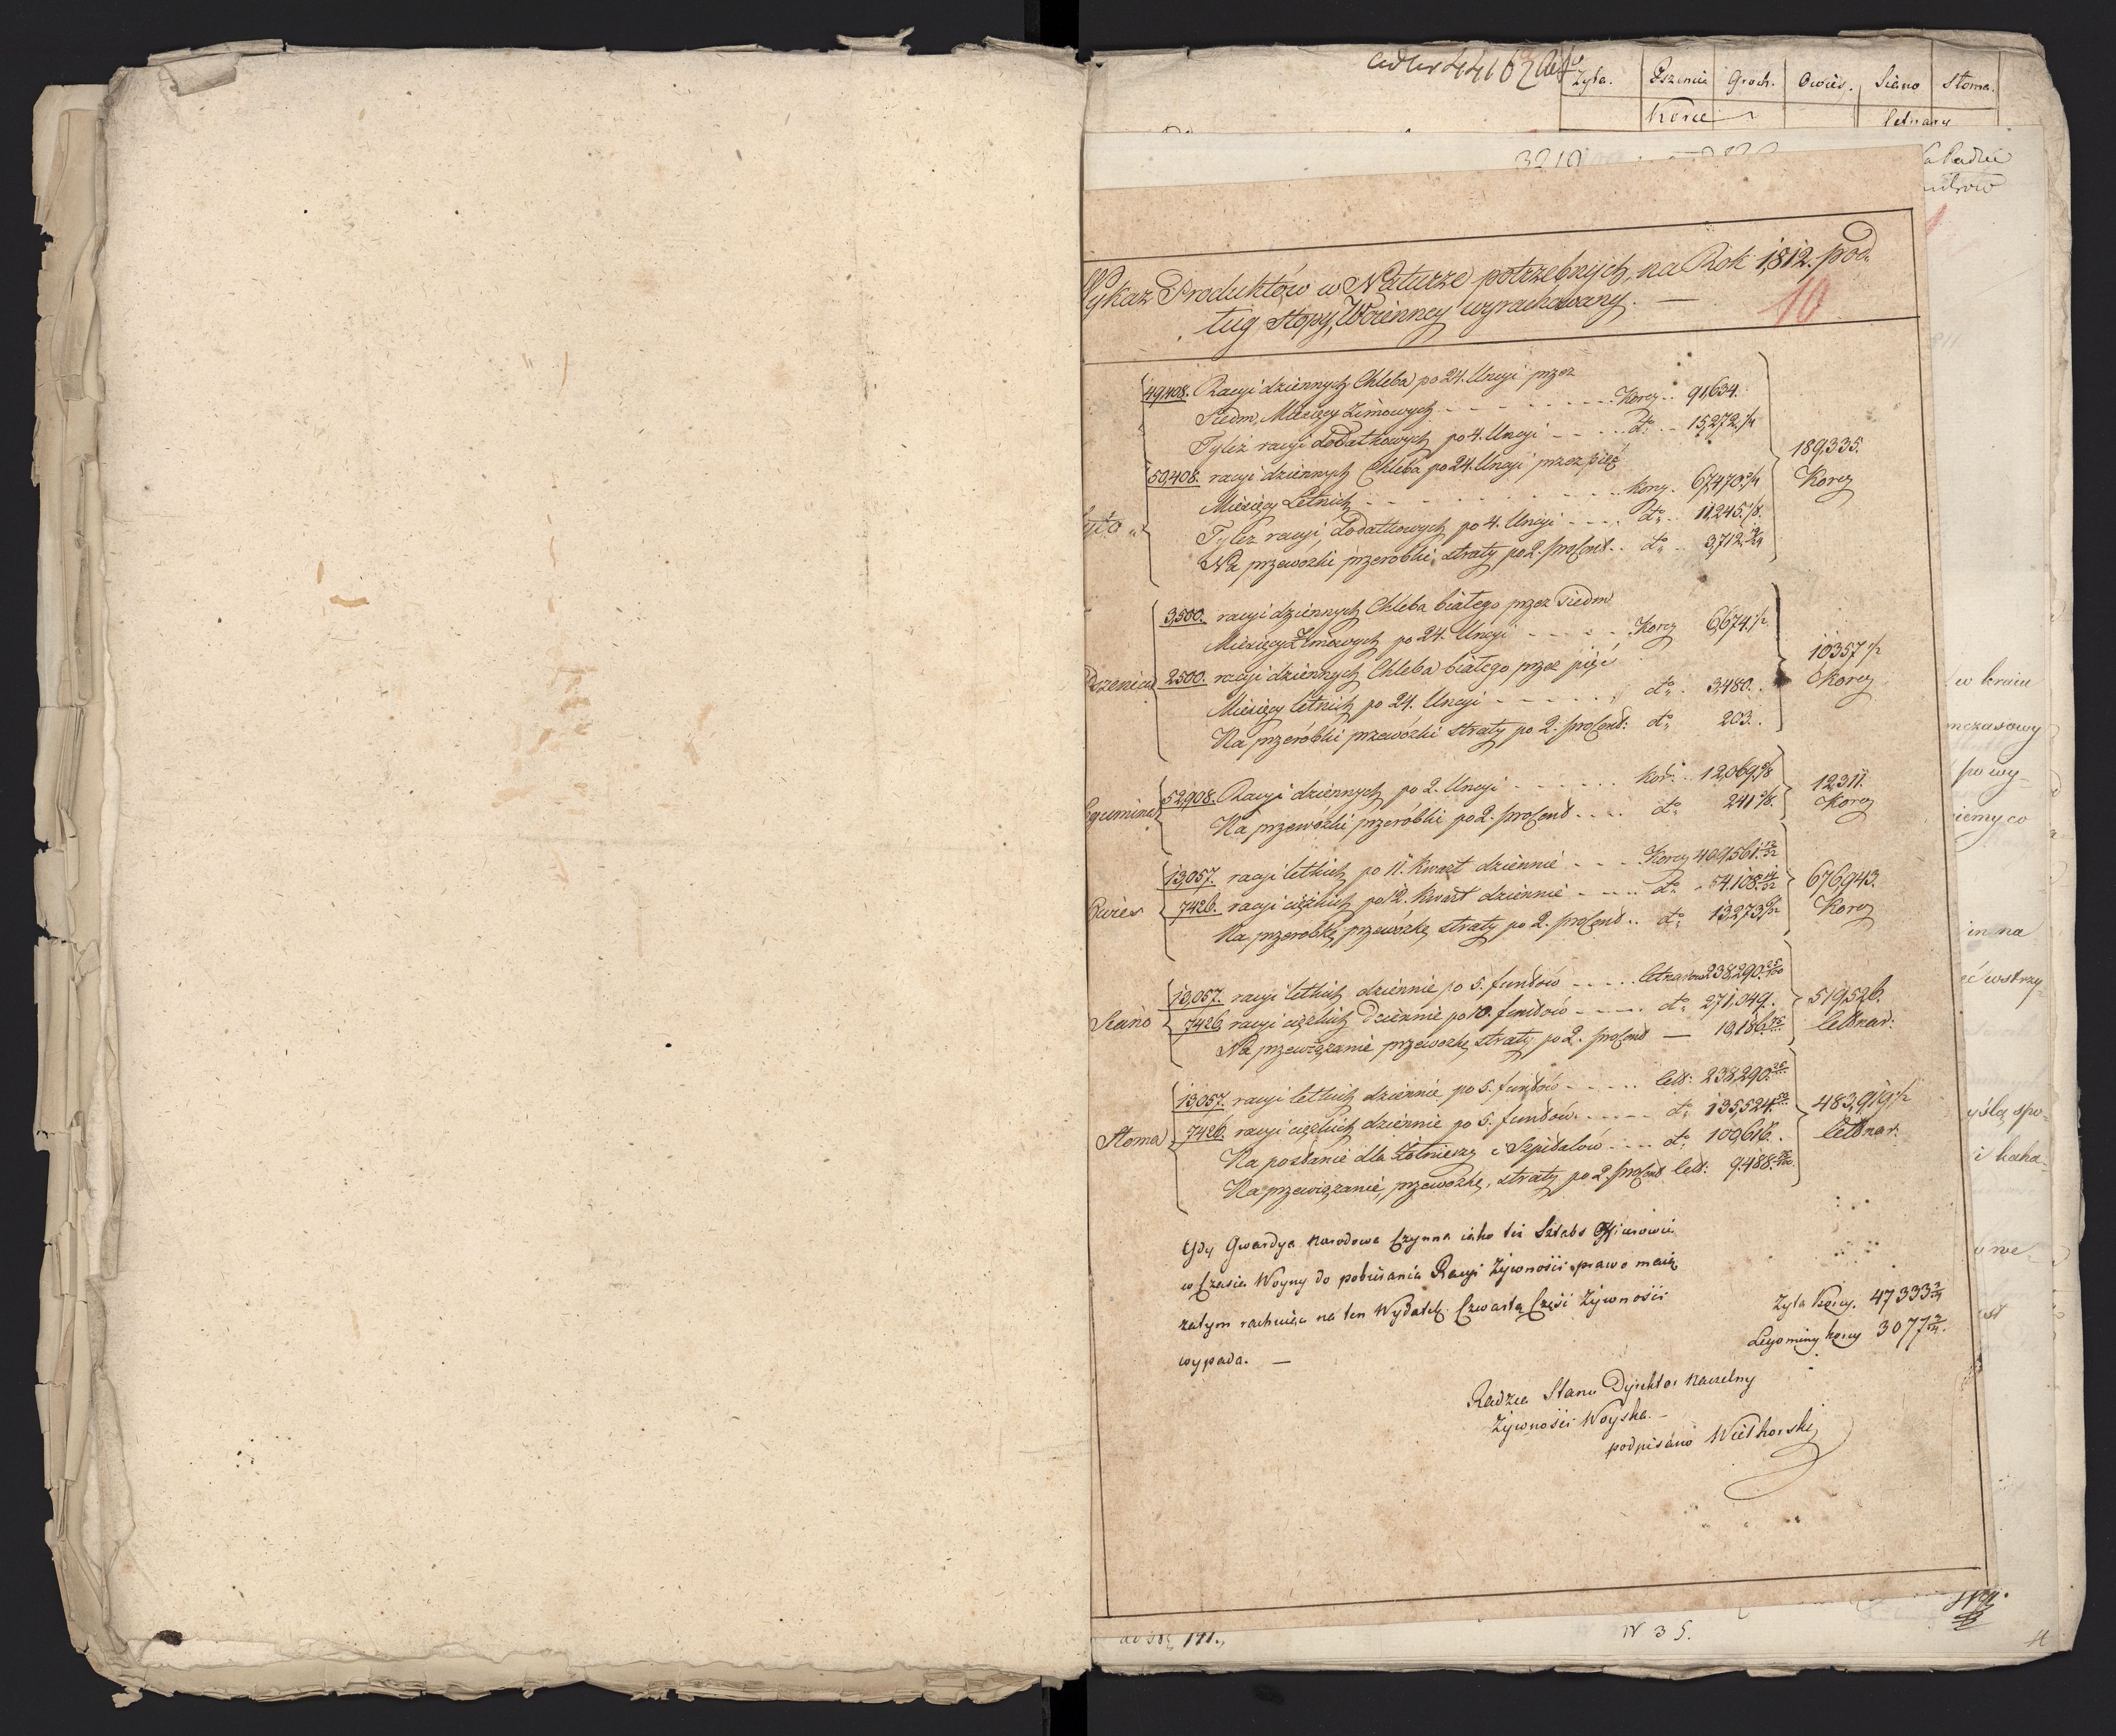 Żyta. Pszenica Groch. Owies. Siano Słoma.
Korce
Wykaz Produktów w Naturze potrzebnych, na Rok 1812. pod„
ług Stopy Woienney wyrachowany. —
10
Żyto „
49,408. Racyi dziennych Chleba po 24. Uncyi przez
Siedm Miesięcy Zimowych - - - Korcy .. 91,634.
Tyleż racyi dodatkowych po 4. Uncyi - - - do .. 15,272.1/4
50,408. racyi dziennych Chleba po 24. Uncyi przez pięć
Miesięcy Letnich - - - korcy. 67,470.3/4
Tyleż racyi, dodatkowych po 4. Uncyi - - - do.. 11,245.1/8.
Na przewózki przeróbki, straty po 2. proCent.. do.. 3,712.
189,335.
Korcy
Pszenica
3,500. racyi dziennych Chleba białego przez Siedm
Miesięcy Zimowych po 24. Uncyi - - - Korcy 6,674.1/2
2500. racyi dziennych Chleba białego przez pięć
Miesięcy letnich po 24. Uncyi - - - do. 3,480.
Na przeróbki przewózki straty po 2. proCent: do 203.
10357 1/2
Korcy
Legumina
52,908. Racyi dziennych po 2. Uncyi - - - kor: 12,069.
Na przewózki przeróbki po 2. proCent . . . do 241
12,311.
Korcy
Owies
13,057. racyi letkich po 11. kwart dziennie - - - Korcy 409,561.
7426. racyi ciężkich po 12. kwart dziennie - - - do
Na przerobkę, przewózkę straty po 2. proCent .. do 13,273.
676,943.
Korcy
Siano
13,057. racyi letkich dziennie po 5. funtów - - - letnarów 238,290.25/100
7426. racyi ciężkich dziennie po 10. funtów - - - do 271,049.
Na przewiązanie przewozkę straty po 2. proCent — 10,186.75
519,526.
letnar:
Słoma
13,057. racyi letkich dziennie po 5. funtów - - - let: 238,290.25
7426. racyi ciężkich dziennie po 5. funtów - - - do 135,524.
Na posłanie dla Żołnierzy i Szpitalów - - - do 100,616.
Na przewiązanie, przewózkę, straty po 2. proCent let: 9,488.
483,919.1/2
letnar.
Gdy Gwardya Narodowa Czynna iako też Sztabs Officerowie
w Czasie Woyny do pobierania Racyi Żywności prawo maią
zatym rachuiąc na ten Wydatek Czwartą Część Żywności
wypada. —
Żyta Korcy. 47333 3/4
Legominy korcy 3077 3/4.
Radzca Stanu Dyrektor Naczelny
Żywności Woyska. —
podpisano Wielhorski
w kraiu
mczasowy
po wy-
iemy co
in na
ć wstrzy-
yślą spo-
i kaha-
N 35.